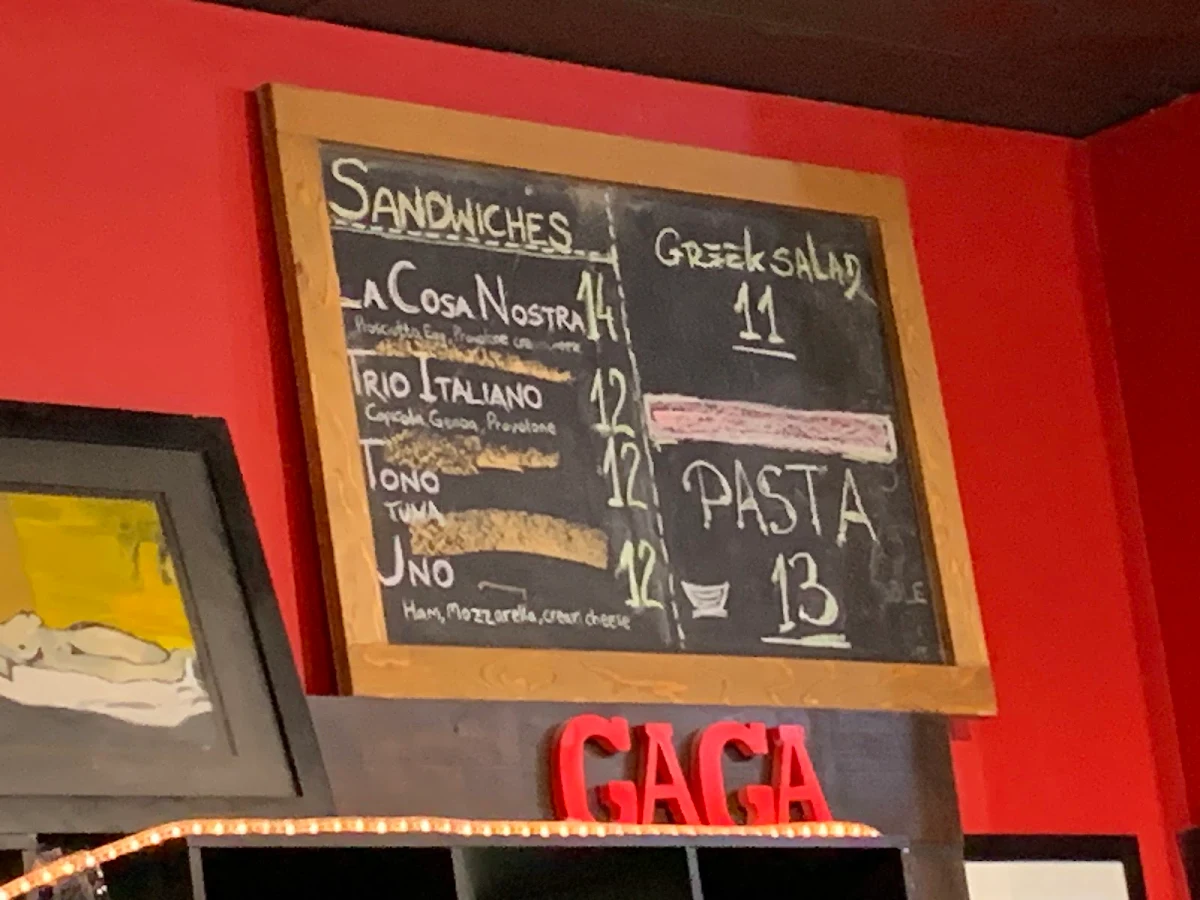 SANDWICHES
LA COSA NOSTRA 14
Prosciutto, Egg, Provolone
TRIO ITALIANO 12
Capicola, Genoa, Provolone
TONO 12
TUNA
UNO 12
Ham, Mozzarella, cream cheese
GREEK SALAD
11
PASTA
13
GAGA